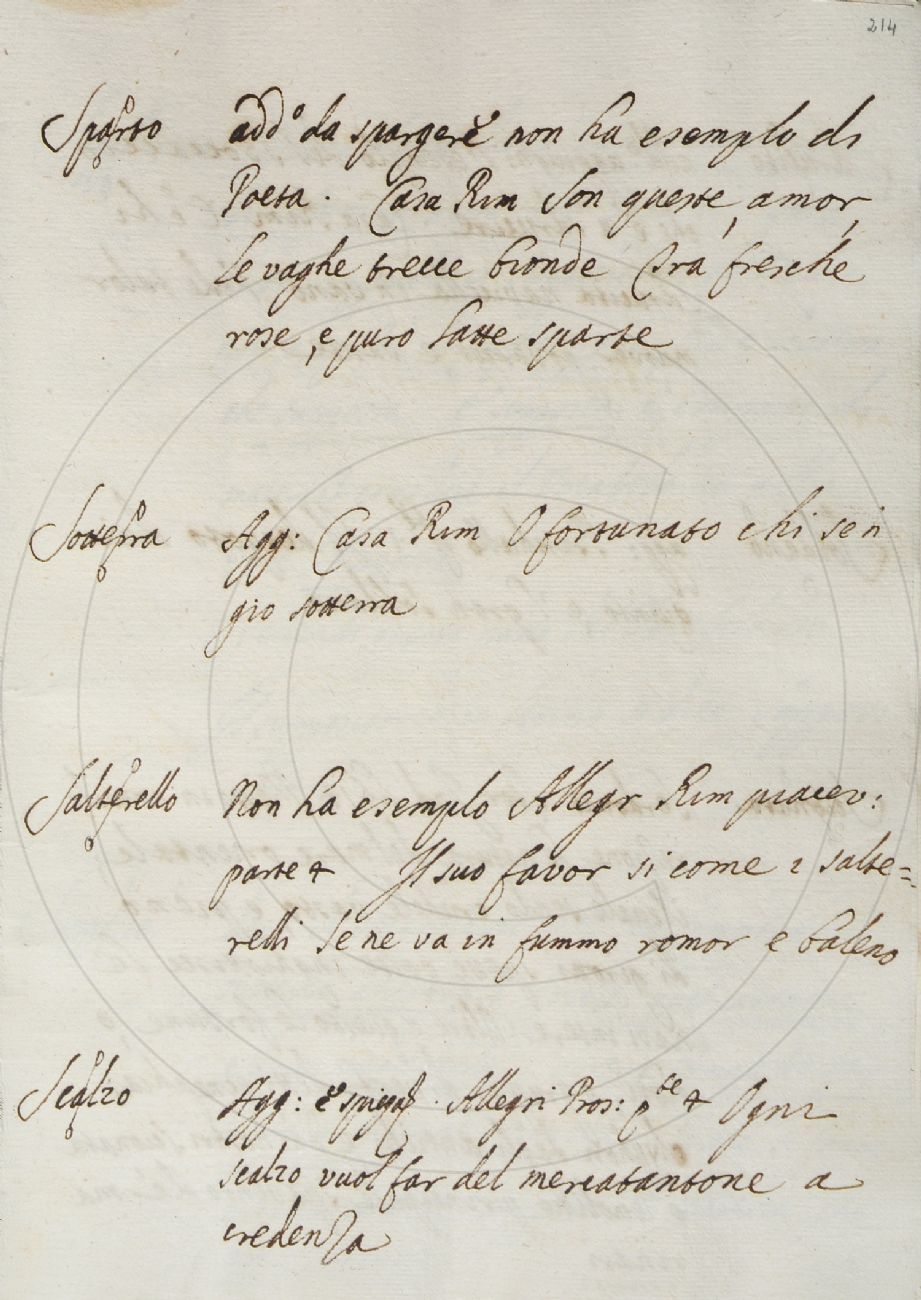 214
Sparto add.º da spargere non ha esemplo di
Poeta. Casa Rim Son queste, amor,
le vaghe trecce bionde Tra fresche
rose, e puro latte sparte
Sotterra Agg: Casa Rim O fortunato chi sen
gio sotterra
Salterello Non ha esemplo Allegr Rim piacev:
parte 4 Il suo favor si come i salte=
relli se ne va in fummo romor e baleno
Scalzo Agg: Allegri Pros: p.te 4 Ogni
scalzo vuol far del mercatantone a
credenza